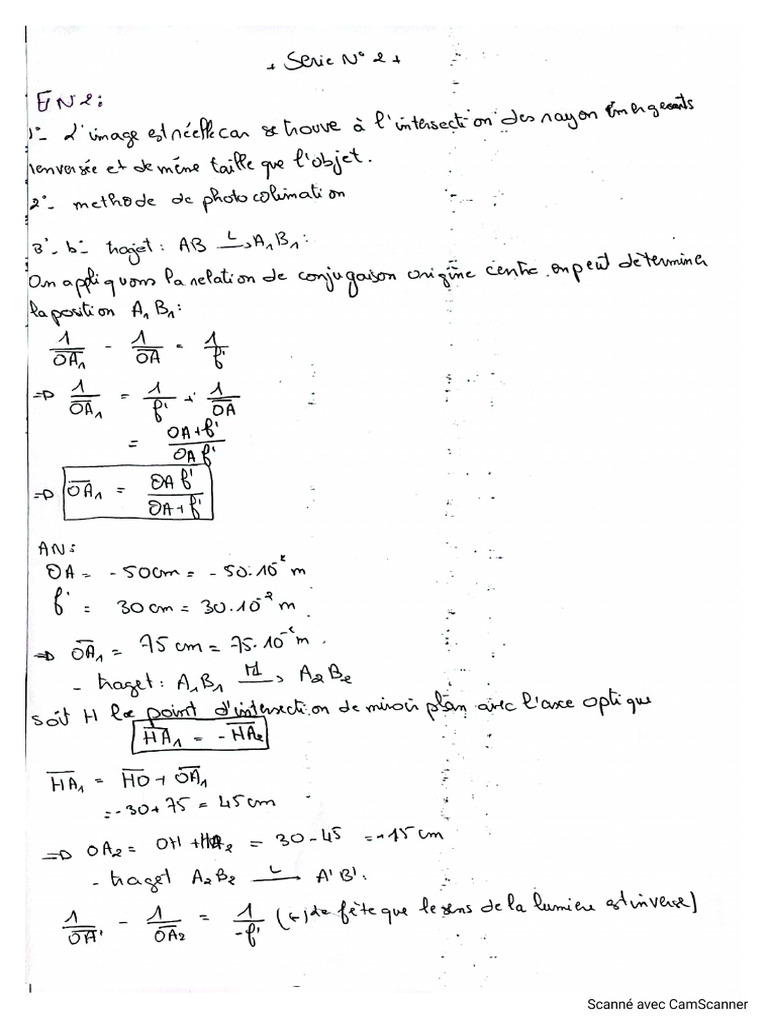 + Serie N° 2 +
EN2:
1°- L'image est réelle car se trouve à l'intersection des rayon émergeants
renversée et de même taille que l'objet.
2°- methode de photocolimation
3°- b- trajet: AB —L→ A₁B₁:
On appliquons la relation de conjugaison origine centre. on peut déterminer
la position A₁B₁:
1/OA₁ - 1/OA = 1/f'
=D 1/OA₁ = 1/f' + 1/OA
= OA+f' / OA f'
=D OA₁ = OA f' / OA+f'
AN:
OA = -50cm = -50.10⁻² m
f' = 30cm = 30.10⁻² m
=D OA₁ = 75cm = 75.10⁻² m.
- traget: A₁B₁ —M→ A₂B₂
soit H le point d'intersection de miroir plan avec l'axe optique
HA₁ = -HA₂
HA₁ = HO + OA₁
= -30+75 = 45cm
=D OA₂ = OH + HA₂ = 30-45 = -15cm
- traget A₂B₂ —L→ A'B':
1/OA' - 1/OA₂ = 1/-f' (-) de fête que le sens de la lumiere est inverse)
Scanné avec CamScanner